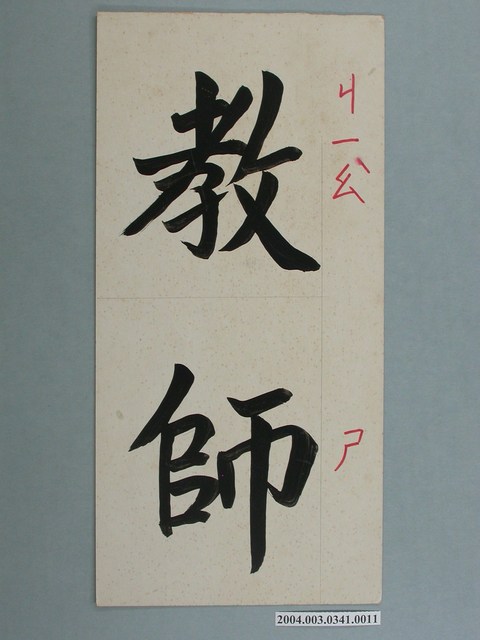 教師
ㄐㄧㄠˋ
ㄕ
2004.003.0341.0011